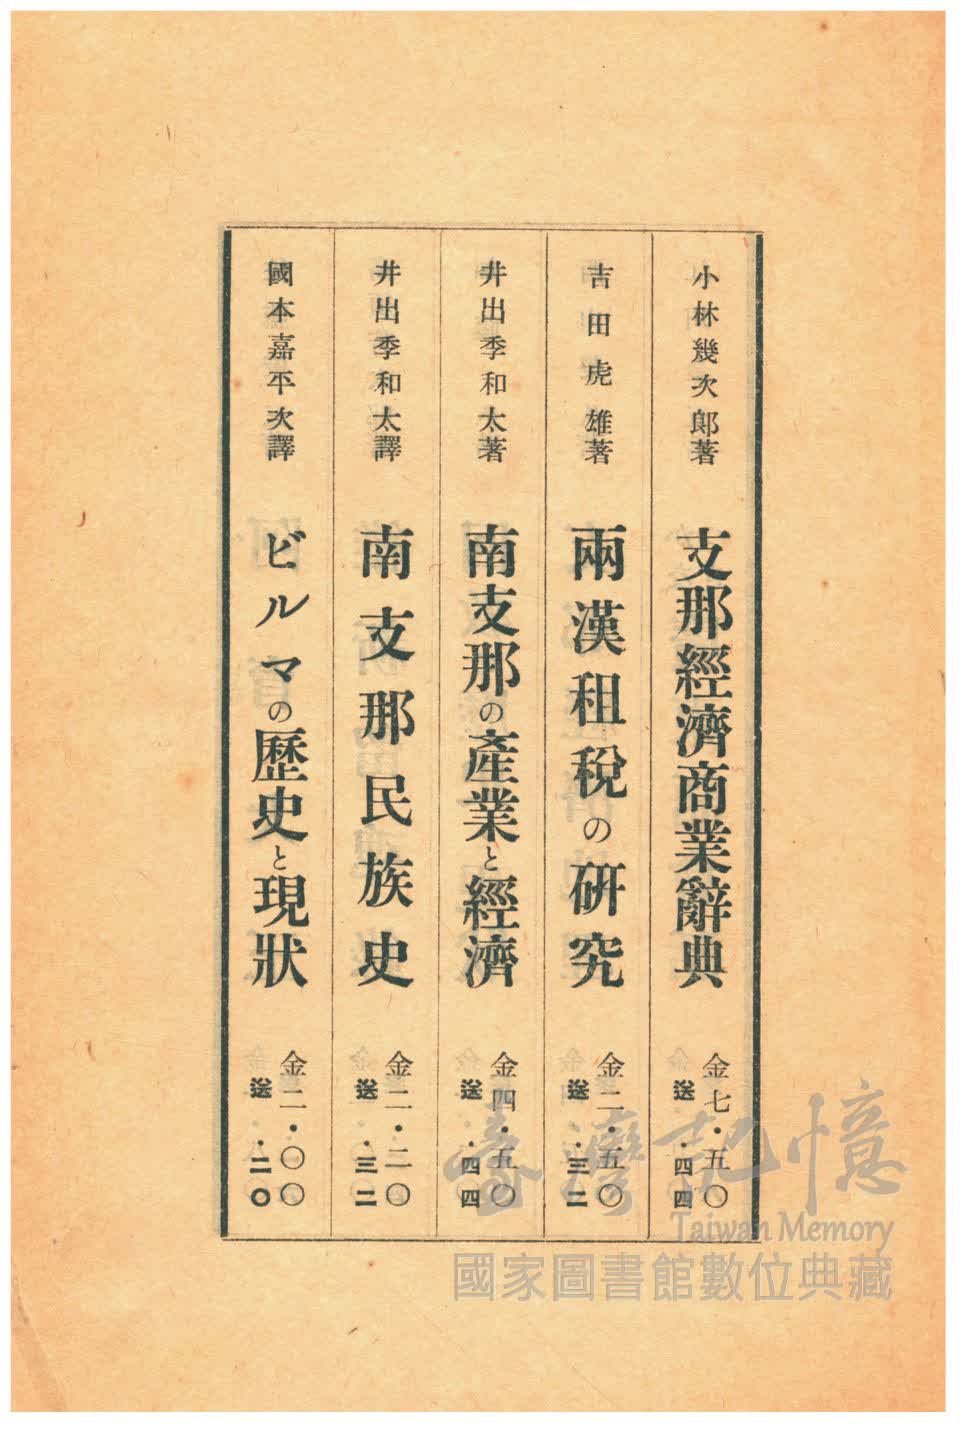 小林幾次郞著
支那經濟商業辭典
金七・五〇
送・四四
吉田虎雄著
兩漢租稅の硏究
金二・五〇
送・三二
井出季和太著
南支那の產業と經濟
金四・五〇
送・四四
井出季和太譯
南支那民族史
金二・二〇
送・三二
國本嘉平次譯
ビルマの歷史と現狀
金二・〇〇
送・二〇
臺灣記憶
Taiwan Memory
國家圖書館數位典藏